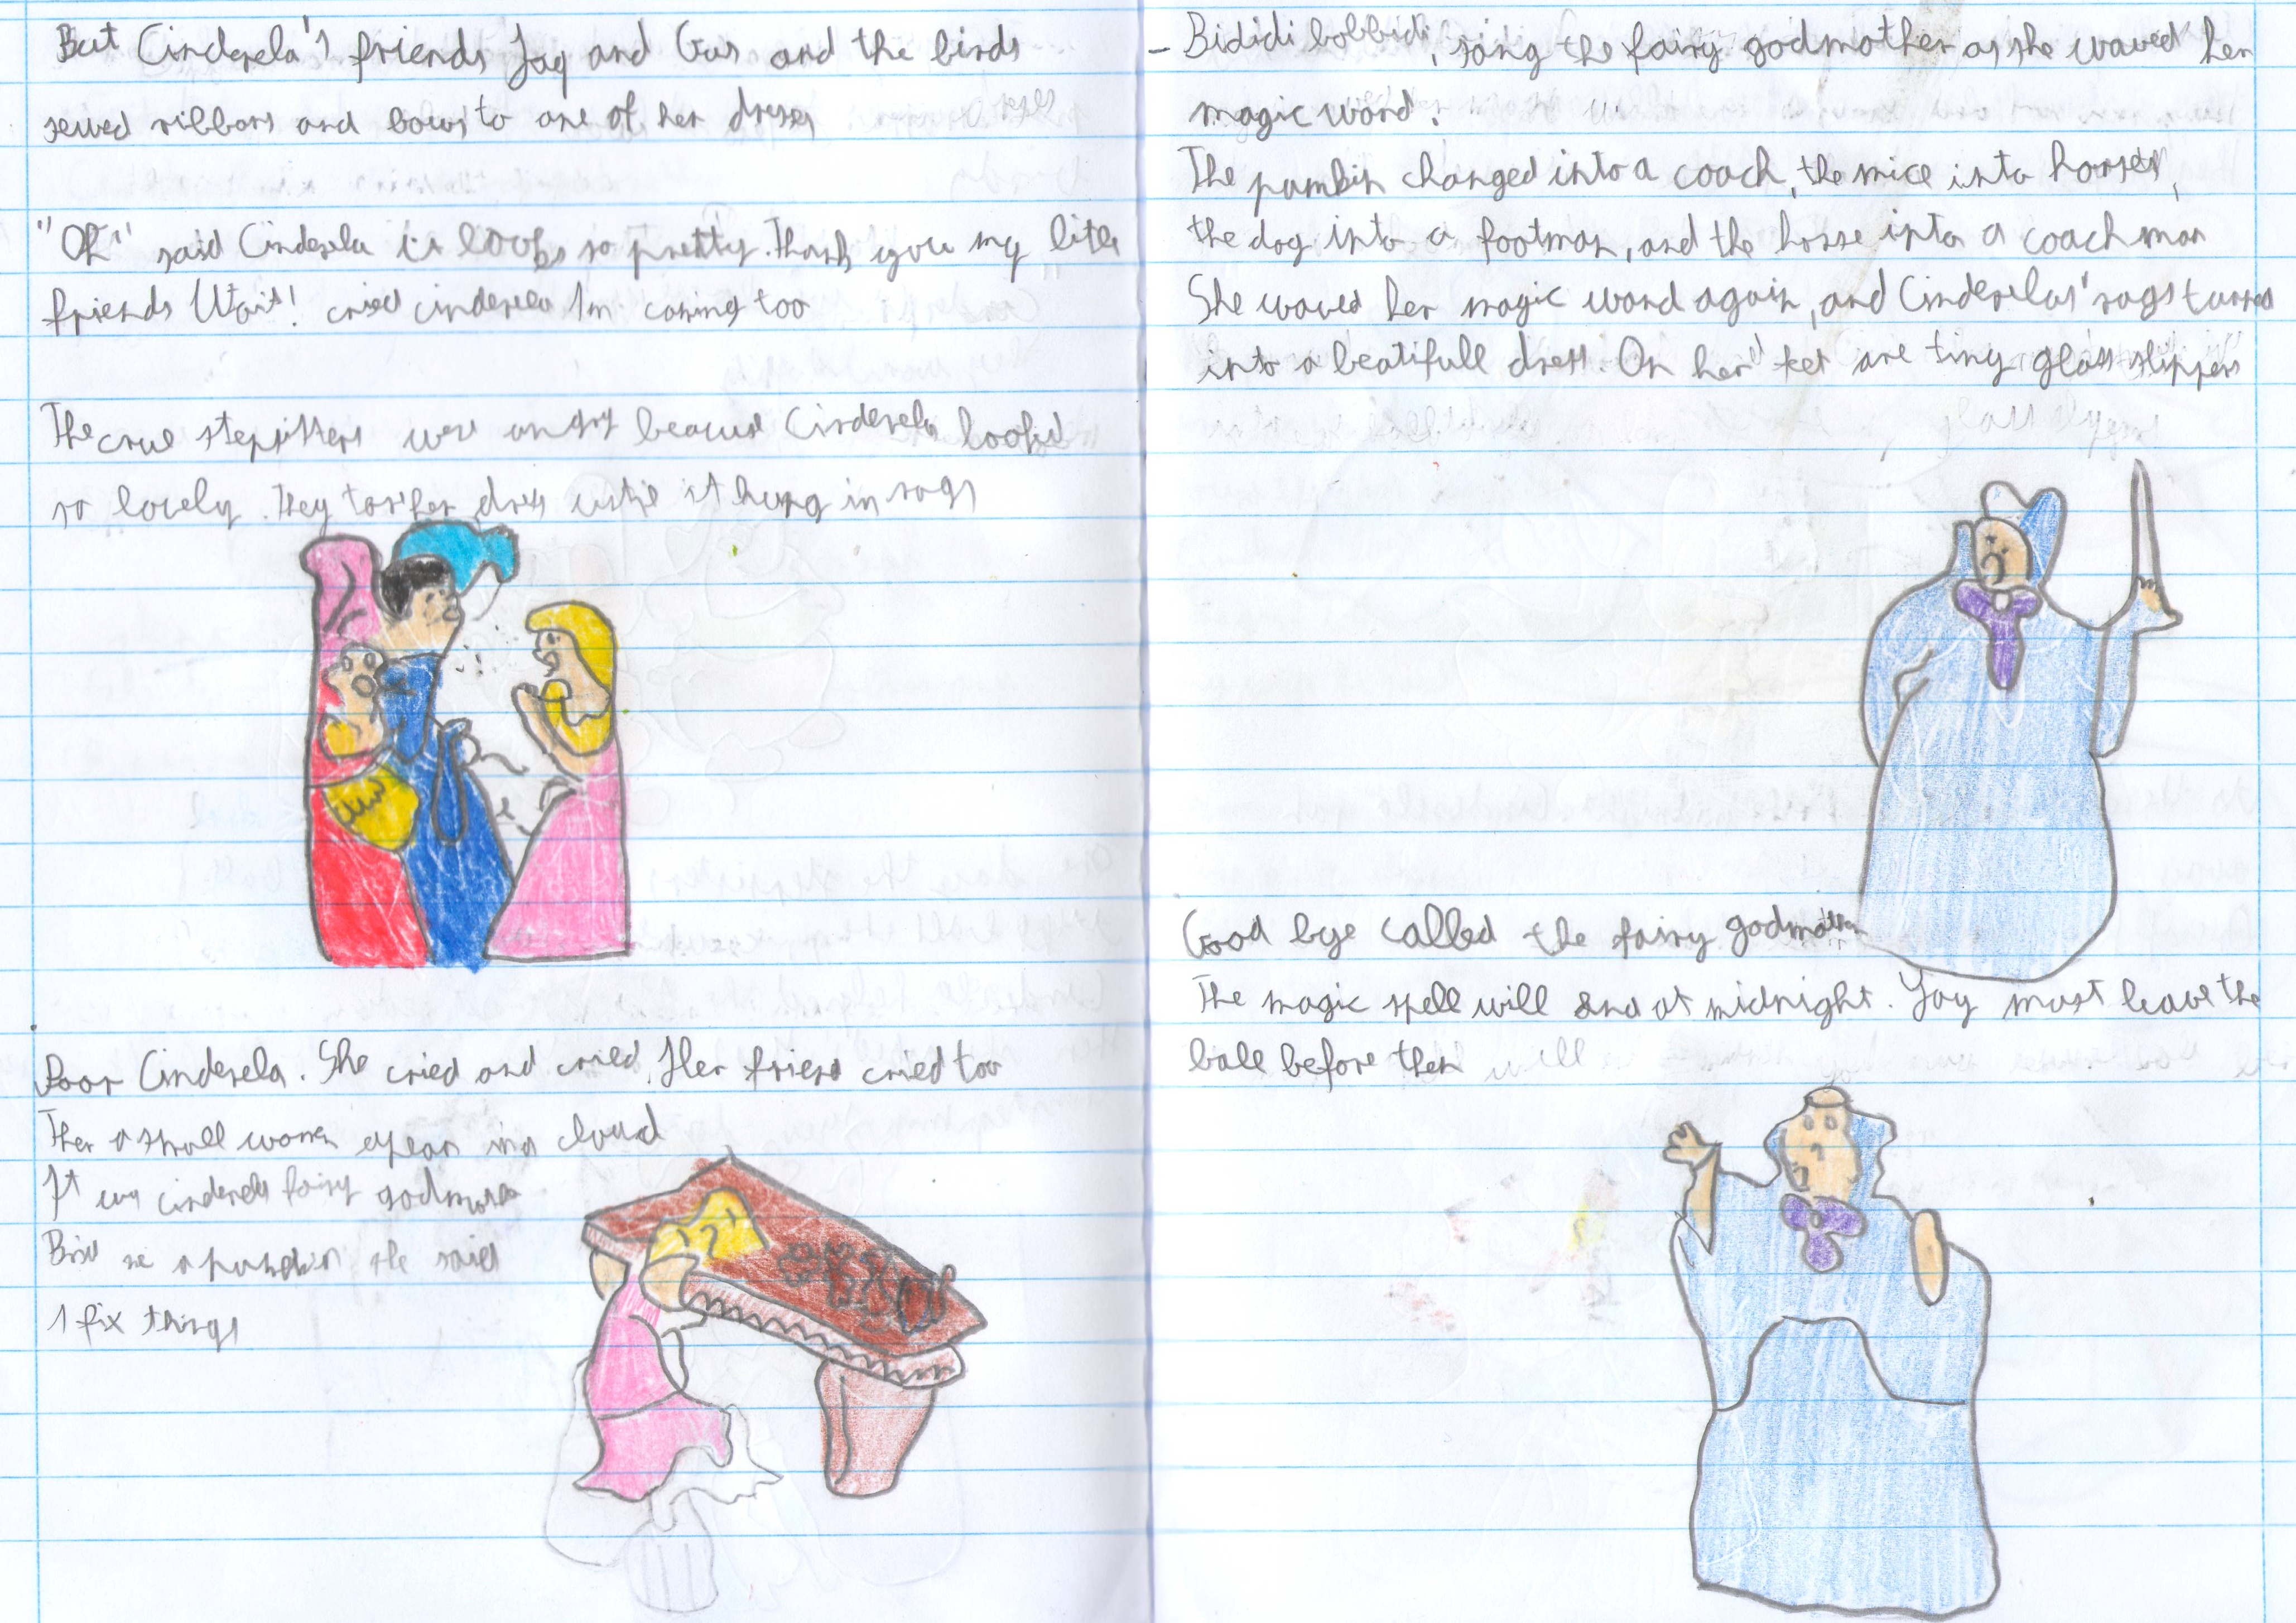 But Cinderela's friends Jaq and Gus and the birds
sewed ribbons and bows to one of her dresses
"Oh" said Cinderela it loobs so pretty. Thank you my litle
friends Wait! cried cinderela Im coming too
The crue stepsisters were angry beacuse Cinderela looked
so lovely. They tor her dress until it hung in rags
Poor Cinderela. She cried and cried. Her friend cried too
Then a small women apear in a cloud
It was cinderela fairy godmother
me a pumpkin she said
I fix things
- Bididi bobbidi, sang the fairy godmother as she waved her
magic wand.
The pumbin changed into a coach, the mice into horses,
the dog into a footman, and the horse into a coach man
She waved her magic wand again, and Cinderelas' rags turned
into a beatifull dress. On her feet are tiny glass slippers
Good bye called the fairy godmother
The magic spell will end at midnight. You must leave the
ball before then